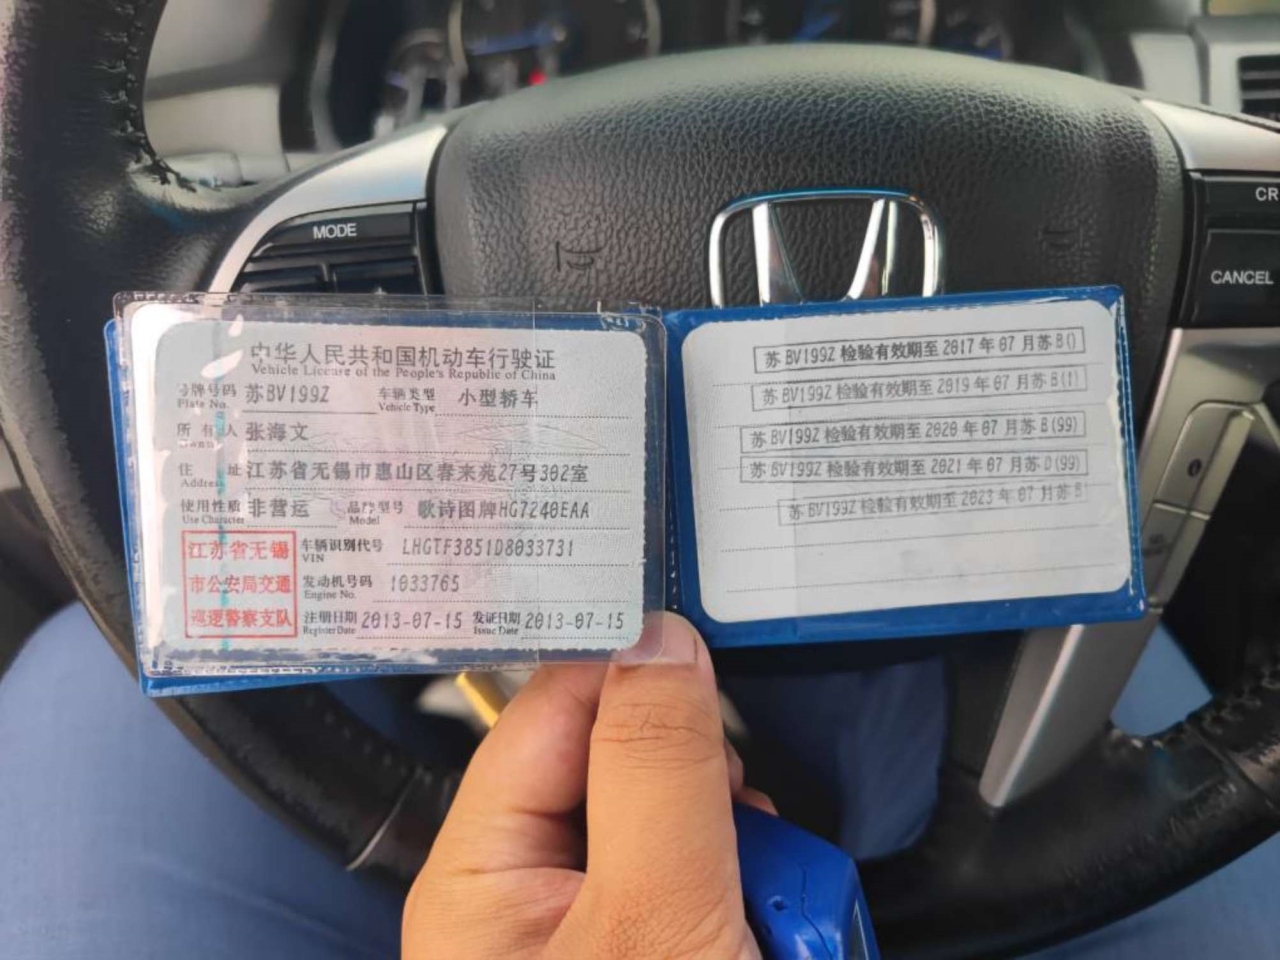 MODE
CR
CANCEL
中华人民共和国机动车行驶证
Vehicle License of the People's Republic of China
号牌号码 苏BV199Z 车辆类型 小型轿车
Plate No. Vehicle Type
所有人 张海文
Owner
住 址 江苏省无锡市惠山区春来苑27号302室
Address
使用性质 非营运 品牌型号 歌诗图牌HG7240EAA
Use Character Model
江苏省无锡
市公安局交通
巡逻警察支队
车辆识别代号 LHGTF3851D8033731
VIN
发动机号码 1033765
Engine No.
注册日期 2013-07-15 发证日期 2013-07-15
Register Date Issue Date
苏BV199Z 检验有效期至 2017 年 07 月苏B()
苏BV199Z 检验有效期至 2019 年 07 月苏B(1)
苏BV199Z 检验有效期至 2020 年 07 月苏B(99)
苏BV199Z 检验有效期至 2021 年 07 月苏D(99)
苏BV199Z 检验有效期至 2023 年 07 月苏B